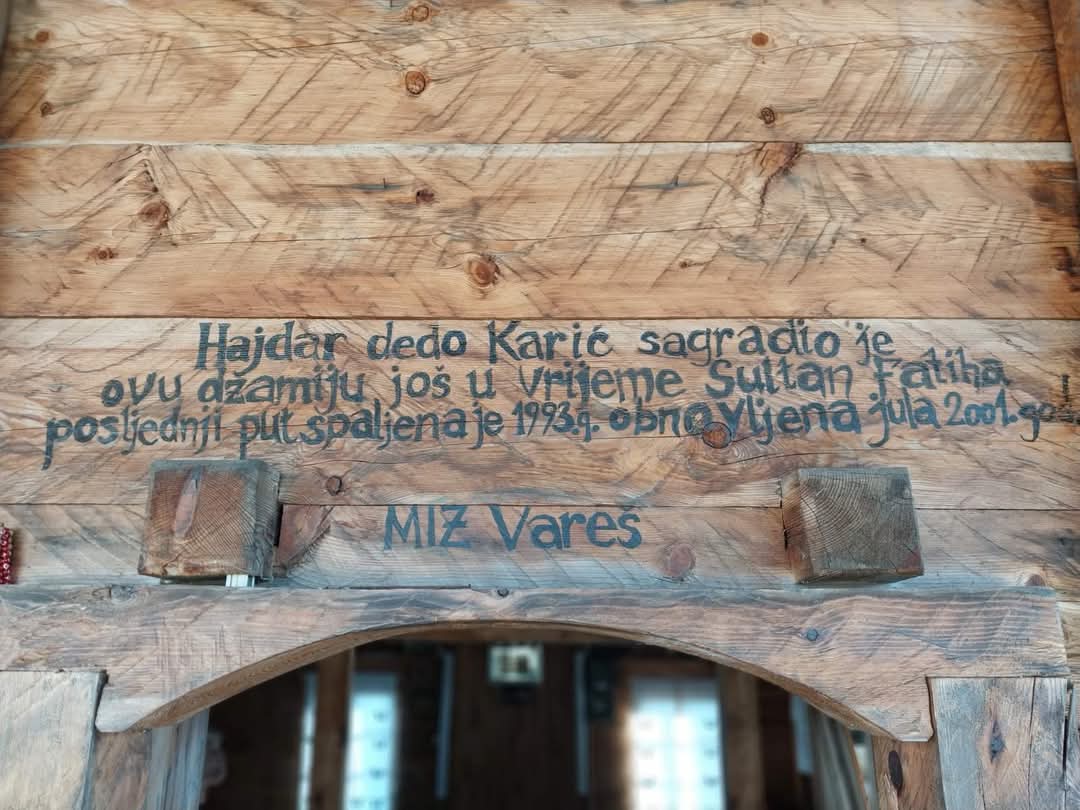 Hajdar dedo Karić sagradio je
ovu džamiju još u vrijeme Sultan Fatiha
posljednji put spaljena je 1993.g. obnovljena jula 2001. god.
MIZ Vareš